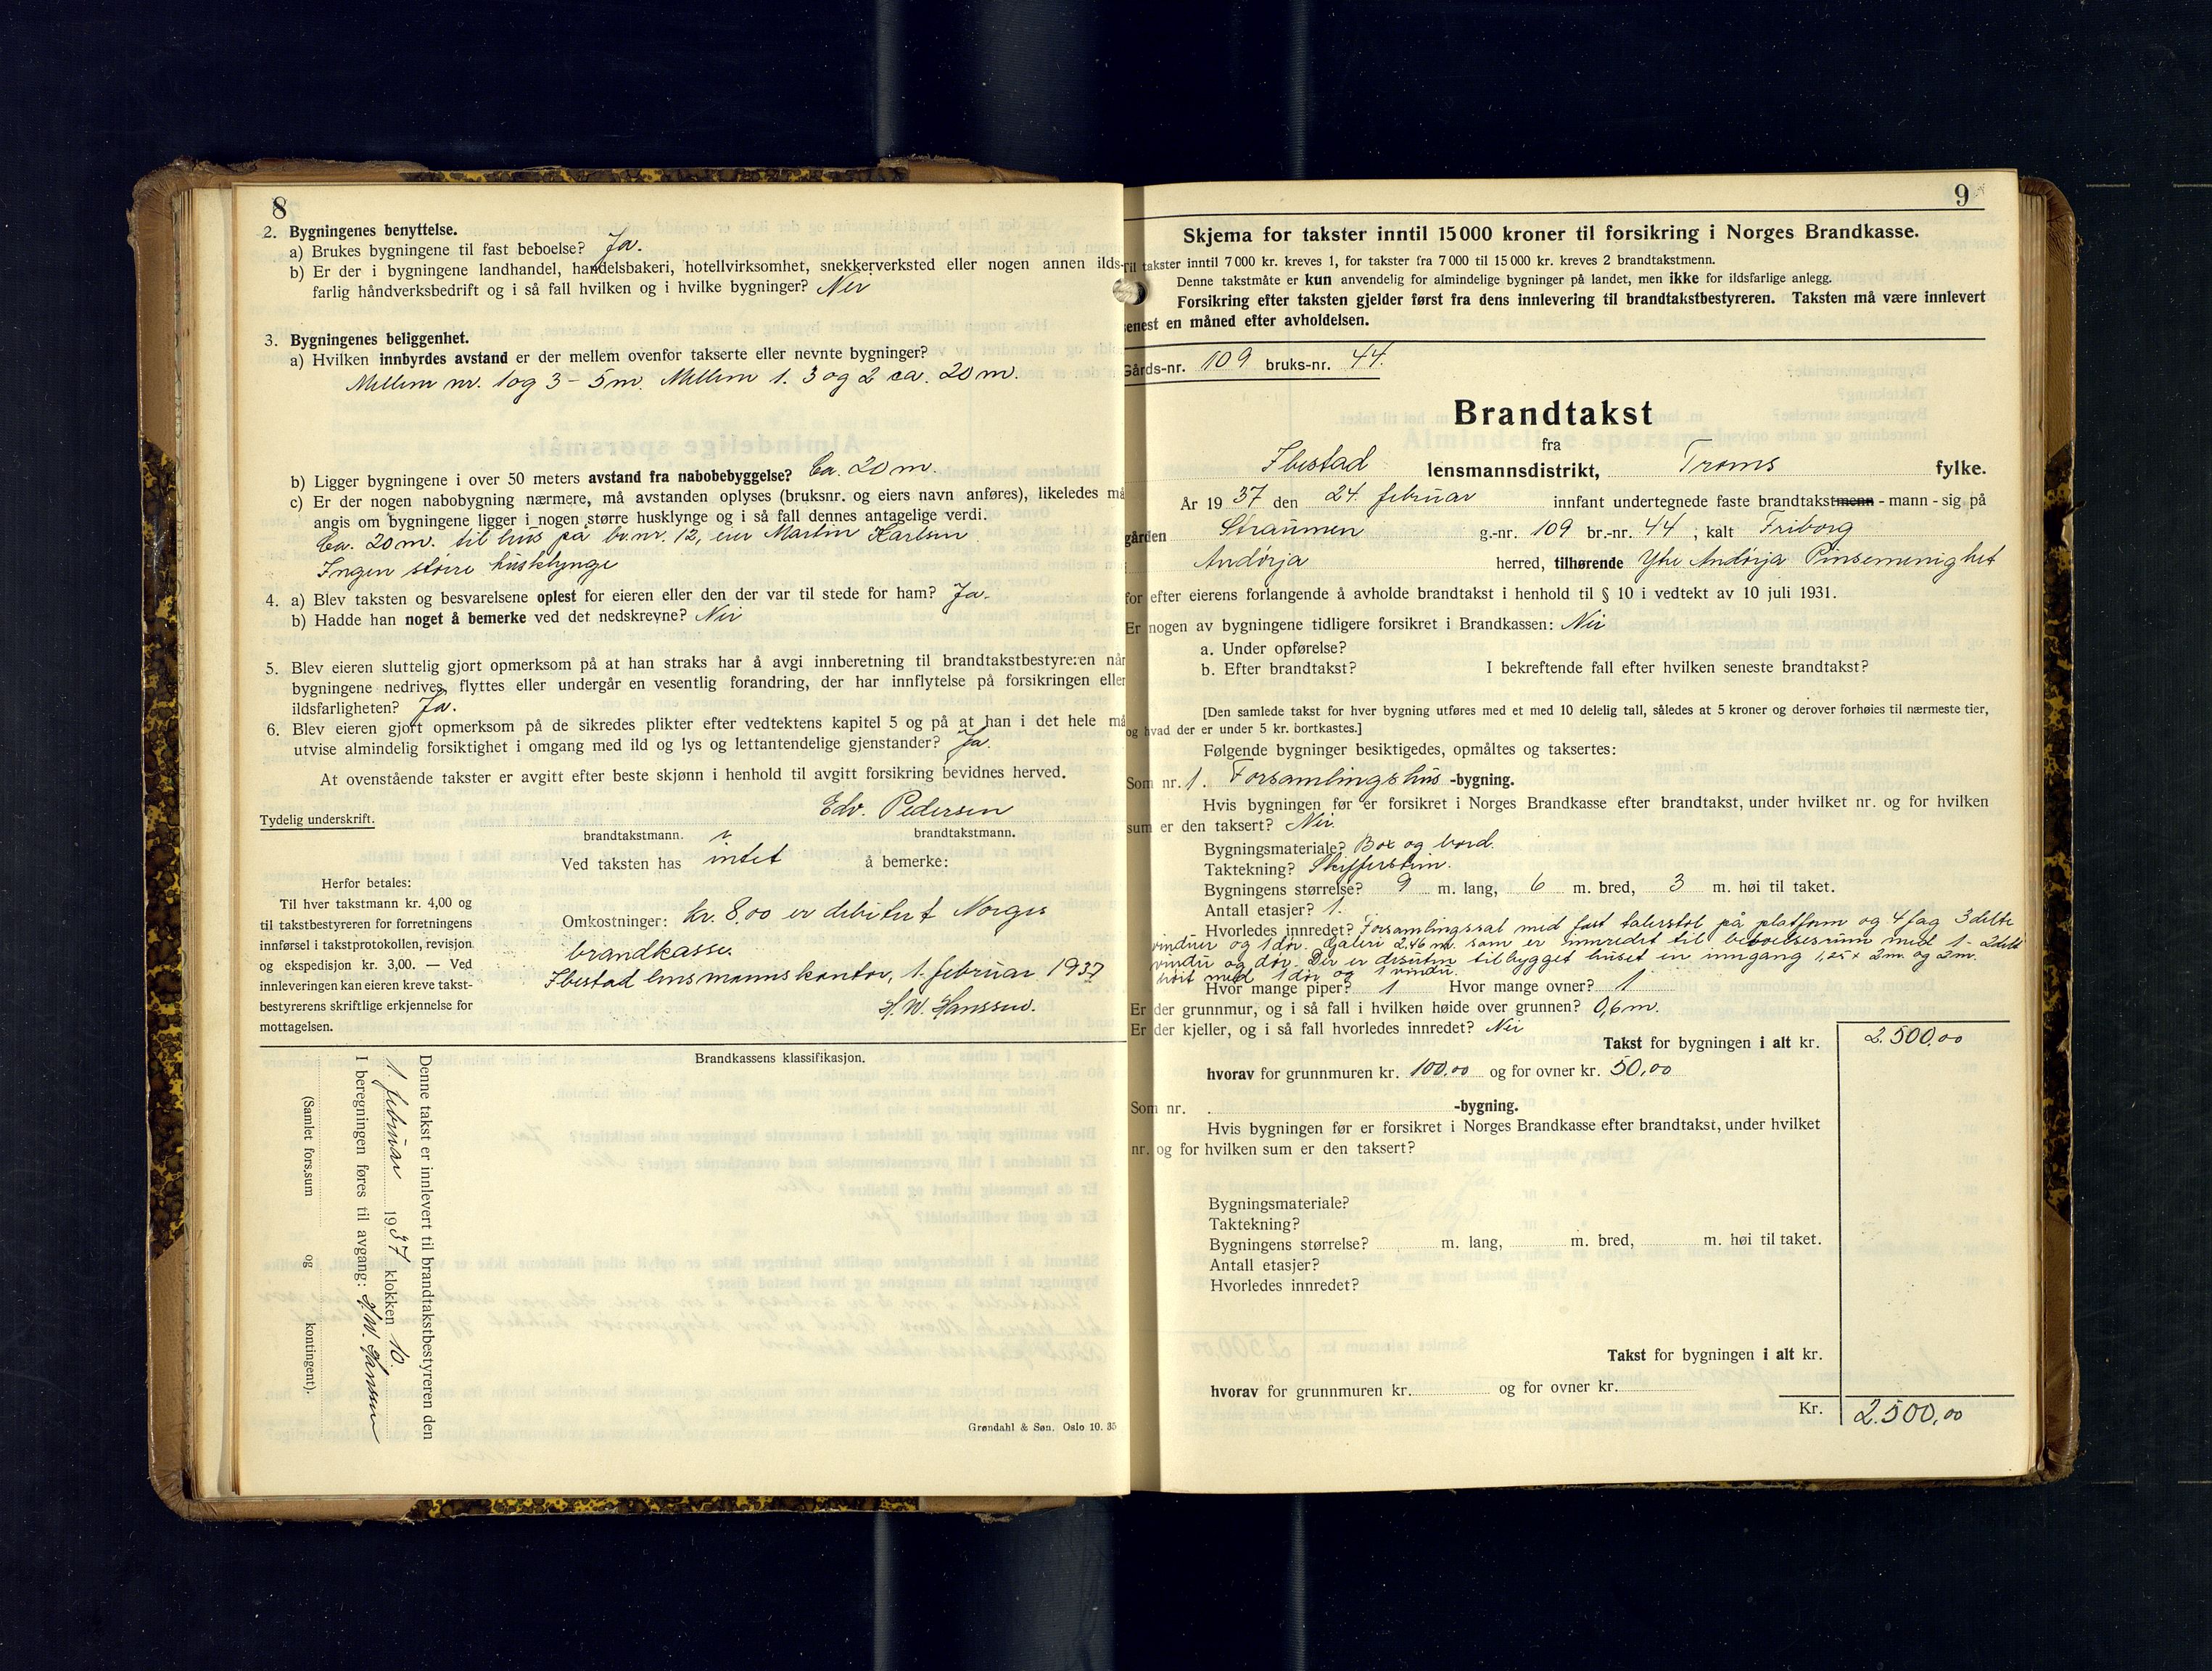 8
2. Bygningenes benyttelse.
a) Brukes bygningene til fast beboelse? Ja.
b) Er der i bygningene landhandel, handelsbakeri, hotellvirksomhet, snekkerverksted eller nogen annen ilds-
farlig håndverksbedrift og i så fall hvilken og i hvilke bygninger? Nei
3. Bygningenes beliggenhet.
a) Hvilken innbyrdes avstand er der mellem ovenfor takserte eller nevnte bygninger?
Mellem nr. 1 og 3 - 5 m. Mellem 1. 3 og 2 ca. 20 m.
b) Ligger bygningene i over 50 meters avstand fra nabobebyggelse? Ca. 20 m.
c) Er der nogen nabobygning nærmere, må avstanden oplyses (bruksnr. og eiers navn anføres), likeledes må
angis om bygningene ligger i nogen større husklynge og i så fall dennes antagelige verdi.
Ca. 20 m. til hus på br.nr. 12, eier Martin Karlsen
Ingen större husklynge
4. a) Blev taksten og besvarelsene oplest for eieren eller den der var til stede for ham? Ja.
b) Hadde han noget å bemerke ved det nedskrevne? Nei
5. Blev eieren sluttelig gjort opmerksom på at han straks har å avgi innberetning til brandtakstbestyreren når
bygningene nedrives, flyttes eller undergår en vesentlig forandring, der har innflytelse på forsikringen eller
ildsfarligheten? Ja.
6. Blev eieren gjort opmerksom på de sikredes plikter efter vedtektens kapitel 5 og på at han i det hele må
utvise almindelig forsiktighet i omgang med ild og lys og lettantendelige gjenstander? Ja.
At ovenstående takster er avgitt efter beste skjønn i henhold til avgitt forsikring bevidnes herved.
Edv. Pedersen
Tydelig underskrift.
brandtakstmann. brandtakstmann.
Ved taksten has intet å bemerke:
Herfor betales:
Til hver takstmann kr. 4,00 og
til takstbestyreren for forretningens
innførsel i takstprotokollen, revisjon
og ekspedisjon kr. 3,00. — Ved
innleveringen kan eieren kreve takst-
bestyrerens skriftlige erkjennelse for
mottagelsen.
Omkostninger: kr. 8,00 er debitert Norges
brandkasse.
Ibestad lensmannskontor, 1. februar 1937
H.W. Hanssen.
Brandkassens klassifikasjon.
Denne takst er innlevert til brandtakstbestyreren den
1. februar 1937 klokken 10.
I beregningen føres til avgang: H.W. Hanssen
(Samlet fors.sum og kontingent).
Grøndahl & Søn. Oslo 10. 35
9
Skjema for takster inntil 15000 kroner til forsikring i Norges Brandkasse.
Til takster inntil 7000 kr. kreves 1, for takster fra 7000 til 15000 kr. kreves 2 brandtakstmenn.
Denne takstmåte er kun anvendelig for almindelige bygninger på landet, men ikke for ildsfarlige anlegg.
Forsikring efter taksten gjelder først fra dens innlevering til brandtakstbestyreren. Taksten må være innlevert
senest en måned efter avholdelsen.
Gårds-nr. 109 bruks-nr. 44.
Brandtakst
fra
Ibestad lensmannsdistrikt, Troms fylke.
År 1937 den 24. februar innfant undertegnede faste brandtakstmenn - mann - sig på
gården Straumen g.-nr. 109 br.-nr. 44 ; kalt Friborg
i Andörja herred, tilhørende Ytre Andörja Pinsemenighet
for efter eierens forlangende å avholde brandtakst i henhold til § 10 i vedtekt av 10 juli 1931.
Er nogen av bygningene tidligere forsikret i Brandkassen: Nei
a. Under opførelse?
b. Efter brandtakst? I bekreftende fall efter hvilken seneste brandtakst?
[Den samlede takst for hver bygning utføres med et med 10 delelig tall, således at 5 kroner og derover forhøies til nærmeste tier,
og hvad der er under 5 kr. bortkastes.]
Følgende bygninger besiktigedes, opmåltes og taksertes:
Som nr. 1. Forsamlingshus -bygning.
Hvis bygningen før er forsikret i Norges Brandkasse efter brandtakst, under hvilket nr. og for hvilken
sum er den taksert? Nei.
Bygningsmateriale? Box og bord.
Taktekning? Skifferstein.
Bygningens størrelse? 9 m. lang, 6 m. bred, 3 m. høi til taket.
Antall etasjer? 1.
Hvorledes innredet? Forsamlingssal med fast talerstol på platform og 4 fag 3 delte
vinduer og 1 dör. Galeri 2.46 m. som er innredet til beboelsesrum med 1 - 2 delt
vindu og dör. Der er desuten tilbygget huset en inngang 1,25 x 2 m. og 2 m.
höit med 1 dör og 1 vindu.
Hvor mange piper? 1 Hvor mange ovner? 1
Er der grunnmur, og i så fall i hvilken høide over grunnen? 0,6 m.
Er der kjeller, og i så fall hvorledes innredet? Nei
Takst for bygningen i alt kr. 2.500,00
hvorav for grunnmuren kr. 100,00 og for ovner kr. 50,00
Som nr. -bygning.
Hvis bygningen før er forsikret i Norges Brandkasse efter brandtakst, under hvilket
nr. og for hvilken sum er den taksert?
Bygningsmateriale?
Taktekning?
Bygningens størrelse? m. lang, m. bred, m. høi til taket.
Antall etasjer?
Hvorledes innredet?
Takst for bygningen i alt kr.
hvorav for grunnmuren kr. og for ovner kr.
Kr. 2.500,00